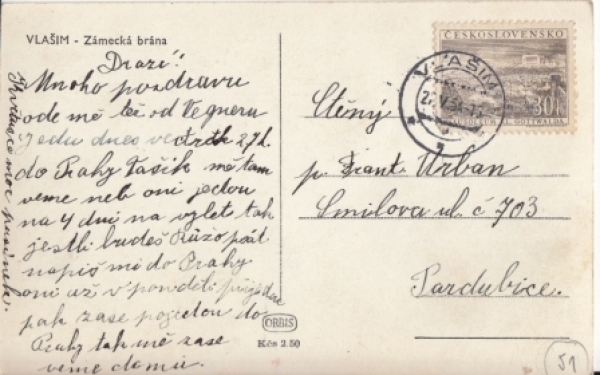 VLAŠIM - Zámecká brána
Drazí!
Mnoho pozdravu
ode mě též od Vegneru
Jedu dnes ve čtvrtk 27.h.
do Prahy Tašik mě tam
veme neb oni jedou
na 4 dni na vylet tak
jestli budeš Růžo psát
napiš mi do Prahy
oni už v pondělí přijedou
pak zase pojedou do
Prahy tak mě zase
veme domů.
moc
ČESKOSLOVENSKO
30h
MAUSOLEUM KL. GOTTWALDA
VLAŠIM
Ctěný
p. Frant. Urban
Smilova ul. č 703
Pardubice.
ORBIS
Kčs 2.50
51